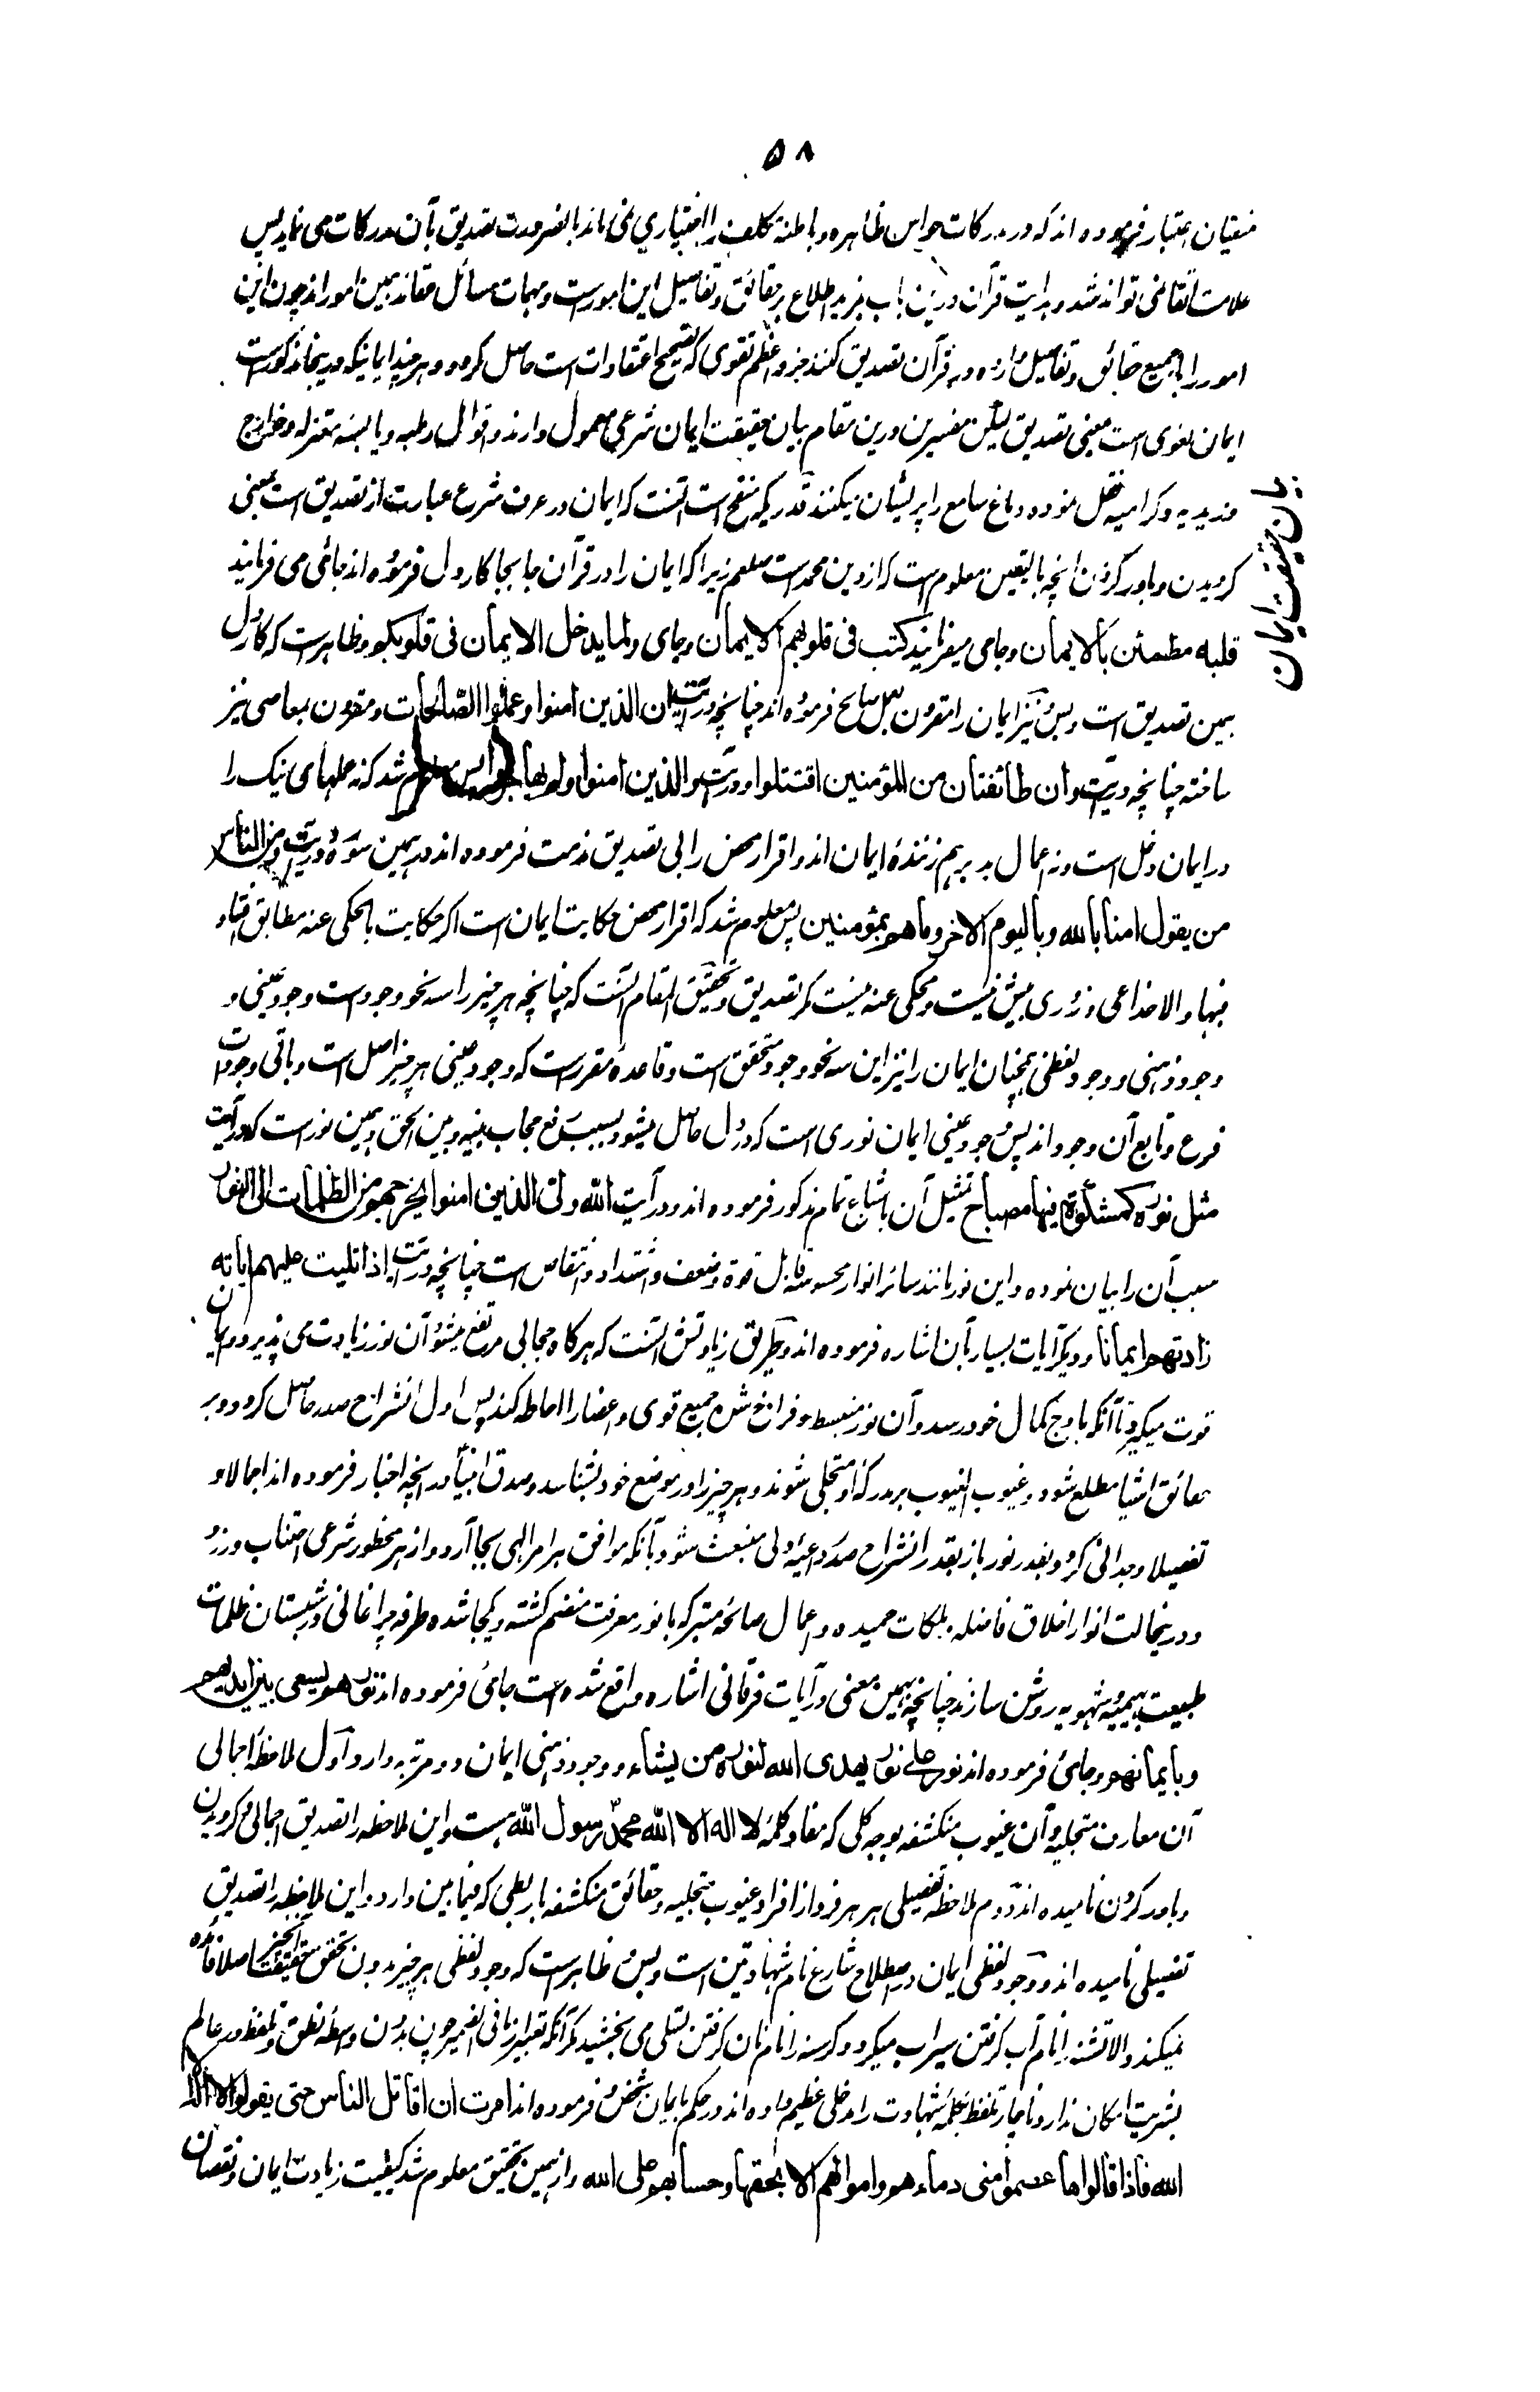 ۵۸
متقیان اعتبار فرموده اند که در مدرکات حواس ظاهره و باطنه مکلف را اختیاری نمی ماند بالضرورت تصدیق بآن مدرکات می نماید پس
علامت اتقا نمی تواند شد و هدایت قرآن درین باب بمزید اطلاع بر حقائق و تفاصیل این امورست و مهمات مسائل عقائد همین امور اند چون این
امور را بجمیع حقائق و تفاصیل وارده در قرآن تصدیق کنند جزو اعظم تقوی که تصحیح اعتقادات است حاصل کرده و هرچند ایمانیکه درینجا مذکورست
ایمان لغوی است بمعنی تصدیق لیکن مفسرین درین مقام بیان حقیقت ایمان شرعی معمول دارند و اقوال رطبه و یابسه معتزله و خوارج
و زیدیه و کرامیه نقل نموده دماغ سامع را پریشان میکنند قدریکه منقح است آنست که ایمان در عرف شرع عبارت از تصدیق است بمعنی
گرویدن و باور کردن آنچه بالیقین معلوم است که از دین محمد است صلعم زیرا که ایمان را در قرآن جابجا کار دل فرموده اند جائی می فرمایند
قلبه مطمئن بالایمان و جای میفرمایند کتب فی قلوبهم الایمان و جای ولما یدخل الایمان فی قلوبکم و ظاهرست که کار دل
همین تصدیق است و بس و نیز ایمان را مقرون بعمل صالح فرموده اند چنانچه در آیت ان الذین امنوا وعملوا الصالحات و مقرون بمعاصی نیز
ساخته چنانچه در آیت وان طائفتان من المؤمنین اقتتلوا و در آیت والذین امنوا ولم یهاجروا پس معلوم شد که نه عملهای نیک را
در ایمان دخل است و نه اعمال بد برهم زنندۀ ایمان اند و اقرار محض را بی تصدیق مذمت فرموده اند در همین سوره در آیت ومن الناس
من یقول امنا بالله وبالیوم الاخر وما هم بمؤمنین پس معلوم شد که اقرار محض حکایت ایمان است اگر حکایت با محکی عنه مطابق افتاد
فبها والا خداعی و زوری بیش نیست و محکی عنه نیست مگر تصدیق و تحقیق المقام آنست که چنانچه هر چیز را سه نحو وجود است وجود عینی و
وجود ذهنی و وجود لفظی همچنان ایمان را نیز این سه نحو وجود متحقق است و قاعدۀ مقررست که وجود عینی هر چیز اصل است و باقی وجودات
فرع و تابع آن وجود اند پس وجود عینی ایمان نوری است که در دل حاصل میشود بسبب رفع حجاب بینه و بین الحق و همین نورست که در آیت
مثل نوره کمشکوة فیها مصباح تمثیل آن باشباع تمام مذکور فرموده اند و در آیت الله ولی الذین امنوا یخرجهم من الظلمات الی النور
سبب آن را بیان نموده و این نور مانند سائر انوار محسوسه قابل قوة و ضعف و اشتداد و انتقاص است چنانچه در آیت اذا تلیت علیهم ایاته
زادتهم ایمانا و دیگر آیات بسیار بآن اشاره فرموده اند و طریق زیادتش آنست که هرگاه حجابی مرتفع میشود آن نور زیادت می پذیرد و ایمان
قوت میگیرد تا آنکه باوج کمال خود رسد و آن نور منبسط و فراخ شده جمیع قوی و اعضا را احاطه کند پس اول انشراح صدر حاصل گردد و بر
حقائق اشیا مطلع شود و غیوب الغیوب بر مدرکۀ او متجلی شوند و هر چیز را در موضع خود بشناسد و صدق انبیا در آنچه اخبار فرموده اند اجمالا و
تفصیلا وجدانی گردد و بقدر نور باز بقدر انشراح صدر داعیۀ دلی منبعث شود بآنکه موافق هر امر الهی بجا آرد و از هر محظور شرعی اجتناب ورزد
و درینحالت انوار اخلاق فاضله و ملکات حمیده و اعمال صالحه متبرکه با نور معرفت منضم گشته و یکجا شده طرفه چراغانی در شبستان ظلمات
طبیعت بهیمیه و شهویه روشن سازند چنانچه بهمین معنی در آیات فرقانی اشاره واقع شده است جائی فرموده اند نورهم یسعی بین ایدیهم
وبایمانهم و جائی فرموده اند نور علی نور یهدی الله لنوره من یشاء و وجود ذهنی ایمان دو مرتبه دارد اول ملاحظۀ اجمالی
آن معارف متجلیه و آن غیوب منکشفه بوجه کلی که مفاد کلمۀ لا اله الا الله محمد رسول الله است و این ملاحظه را تصدیق اجمالی و گرویدن
و باور کردن نامیده اند دوم ملاحظۀ تفصیلی هر هر فرد از افراد غیوب متجلیه و حقائق منکشفه با ربطی که فیما بین دارد و این ملاحظه را تصدیق
تفصیلی نامیده اند و وجود لفظی ایمان در اصطلاح شارع نام شهادتین است و بس و ظاهرست که وجود لفظی هر چیز بدون تحقق حقیقت آنچیز اصلا فائده
نمیکند والا تشنه را نام آب گرفتن سیراب میکرد و گرسنه را نام نان گرفتن تسلی می بخشید مگر آنکه تعبیر از ما فی الضمیر چون بدون واسطۀ نطق و تلفظ در عالم
بشریت امکان ندارد ناچار تلفظ بکلمۀ شهادت را دخلی عظیم داده اند در حکم بایمان شخص و فرموده اند امرت ان اقاتل الناس حتی یقولوا لا اله الا
الله فاذا قالوها عصموا منی دماءهم واموالهم الا بحقها وحسابهم علی الله و از همین تحقیق معلوم شد کیفیت زیادت ایمان و نقصان
بیان حقیقت ایمان